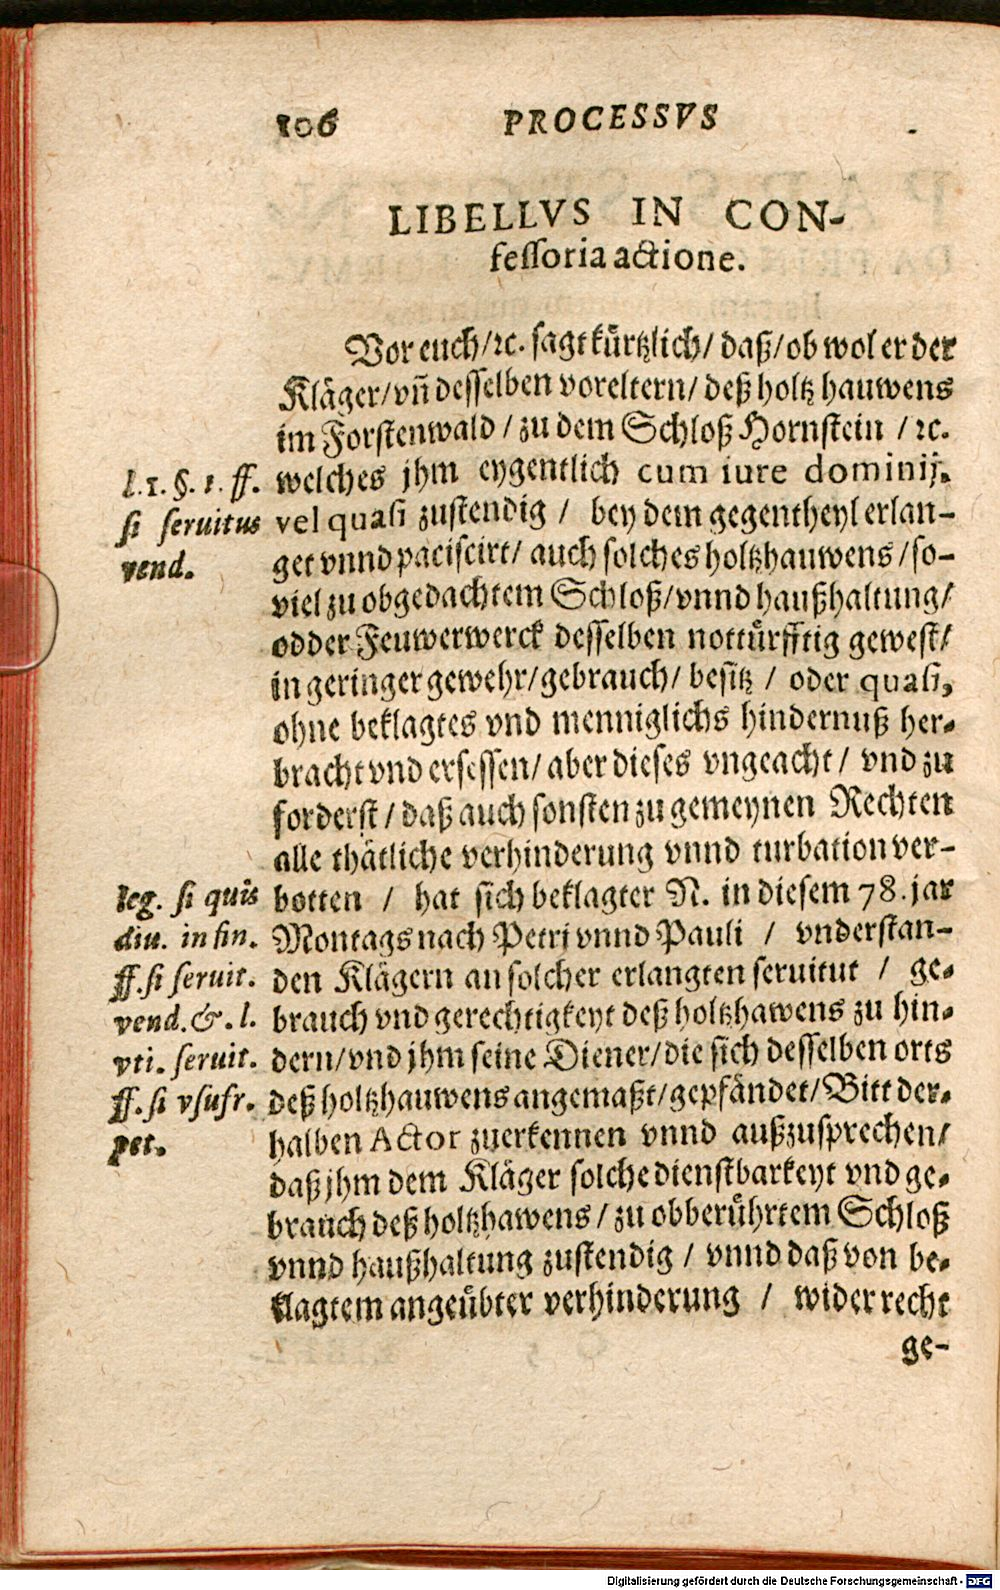 106 PROCESSVS
LIBELLVS IN CON-
fessoria actione.
Vor euch/ꝛc. sagt kürtzlich/ daß/ ob wol er der
Kläger/ vñ desselben voreltern/ deß holtz hauwens
im Forstenwald / zu dem Schloß Hornstein / ꝛc.
welches jhm eygentlich cum iure dominij.
vel quasi zustendig / bey dem gegentheyl erlan-
get vnnd paciscirt/ auch solches holtzhauwens / so-
viel zu obgedachtem Schloß/ vnnd haußhaltung/
odder Feuwerwerck desselben nottürfftig gewest/
in geringer gewehr/ gebrauch/ besitz / oder quasi,
ohne beklagtes vnd menniglichs hindernuß her-
bracht vnd ersessen/ aber dieses vngeacht / vnd zu
forderst / daß auch sonsten zu gemeynen Rechten
alle thätliche verhinderung vnnd turbation ver-
botten / hat sich beklagter N. in diesem 78. jar
Montags nach Petri vnnd Pauli / vnderstan-
den Klägern an solcher erlangten seruitut / ge-
brauch vnd gerechtigkeyt deß holtzhawens zu hin-
dern/ vnd jhm seine Diener/ die sich desselben orts
deß holtzhauwens angemaßt/ gepfändet/ Bitt der-
halben Actor zuerkennen vnnd außzusprechen/
daß jhm dem Kläger solche dienstbarkeyt vnd ge-
brauch deß holtzhawens / zu obberührtem Schloß
vnnd haußhaltung zustendig / vnnd daß von be-
klagtem angeübter verhinderung / wider recht
ge-
l. 1. §. 1. ff.
si seruitus
vend.
leg. si quis
diu. in fin.
ff. si seruit.
vend. &. l.
vti. seruit.
ff. si vsufr.
pet.
Digitalisierung gefördert durch die Deutsche Forschungsgemeinschaft - DFG